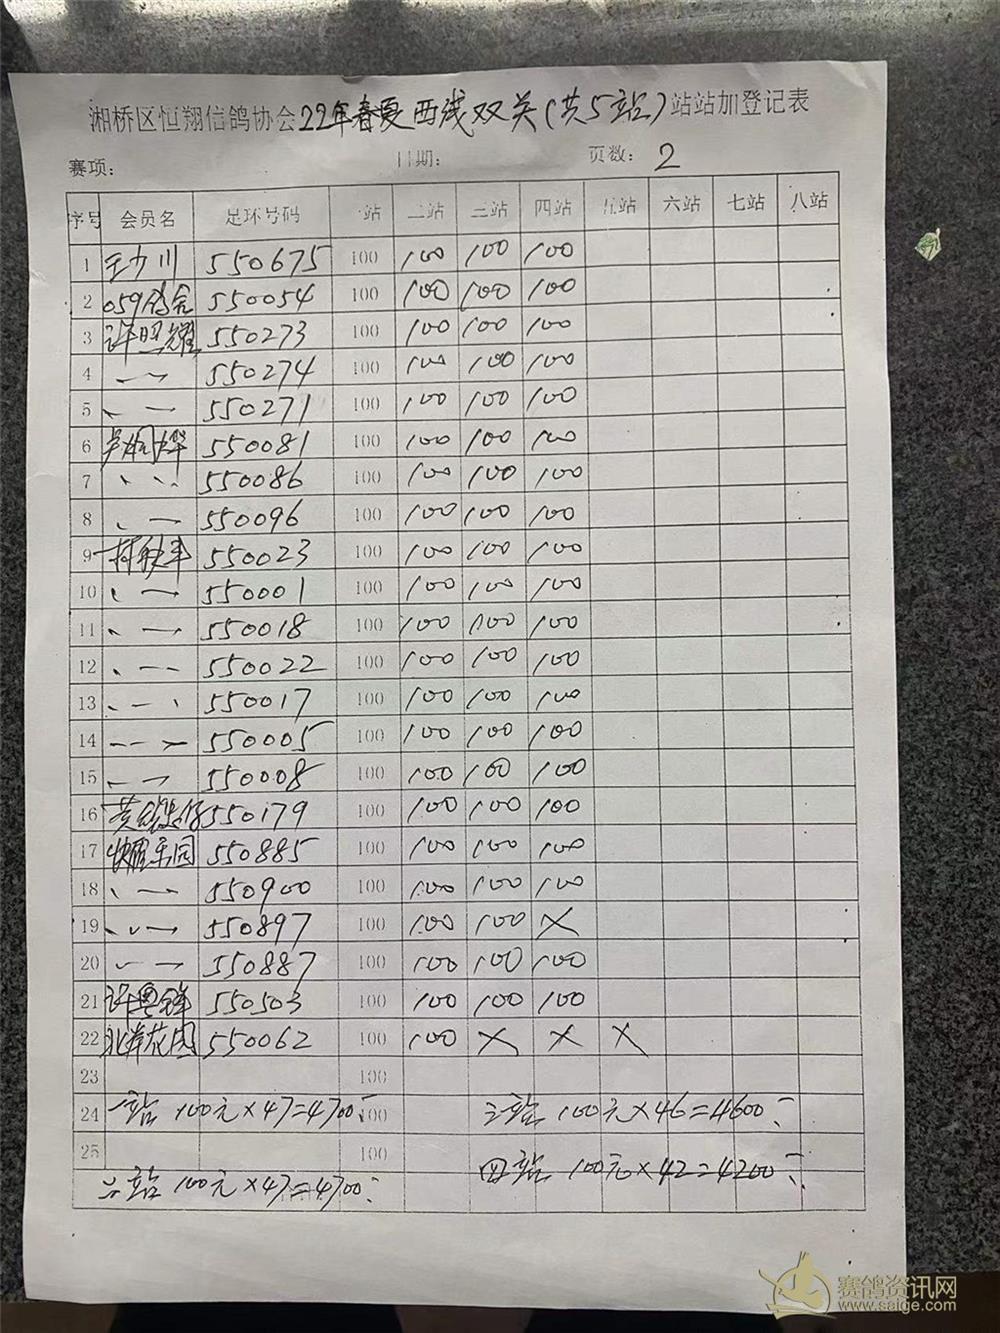 湘桥区恒翔信鸽协会22年春夏西线双关(共5站)站站加登记表
赛项: 日期: 页数: 2
序号 会员名 足环号码 一站 二站 三站 四站 五站 六站 七站 八站
1 王少川 550675 100 100 100 100
2 059鸽舍 550054 100 100 100 100
3 许照耀 550273 100 100 100 100
4 550274 100 100 100 100
5 550271 100 100 100 100
6 550081 100 100 100 100
7 550086 100 100 100 100
8 550096 100 100 100 100
9 550023 100 100 100 100
10 550001 100 100 100 100
11 550018 100 100 100 100
12 550022 100 100 100 100
13 550017 100 100 100 100
14 550005 100 100 100 100
15 550008 100 100 100 100
16 550179 100 100 100 100
17 550885 100 100 100 100
18 550900 100 100 100 100
19 550897 100 100 100 ×
20 550887 100 100 100 100
21 许粤锋 550503 100 100 100 100
22 北岸花园 550062 100 100 × × ×
23 100
24 一站 100元×47=4700 100 三站 100元×46=4600
25 100 四站 100元×42=4200
二站 100元×47=4700
赛鸽资讯网
www.saige.com